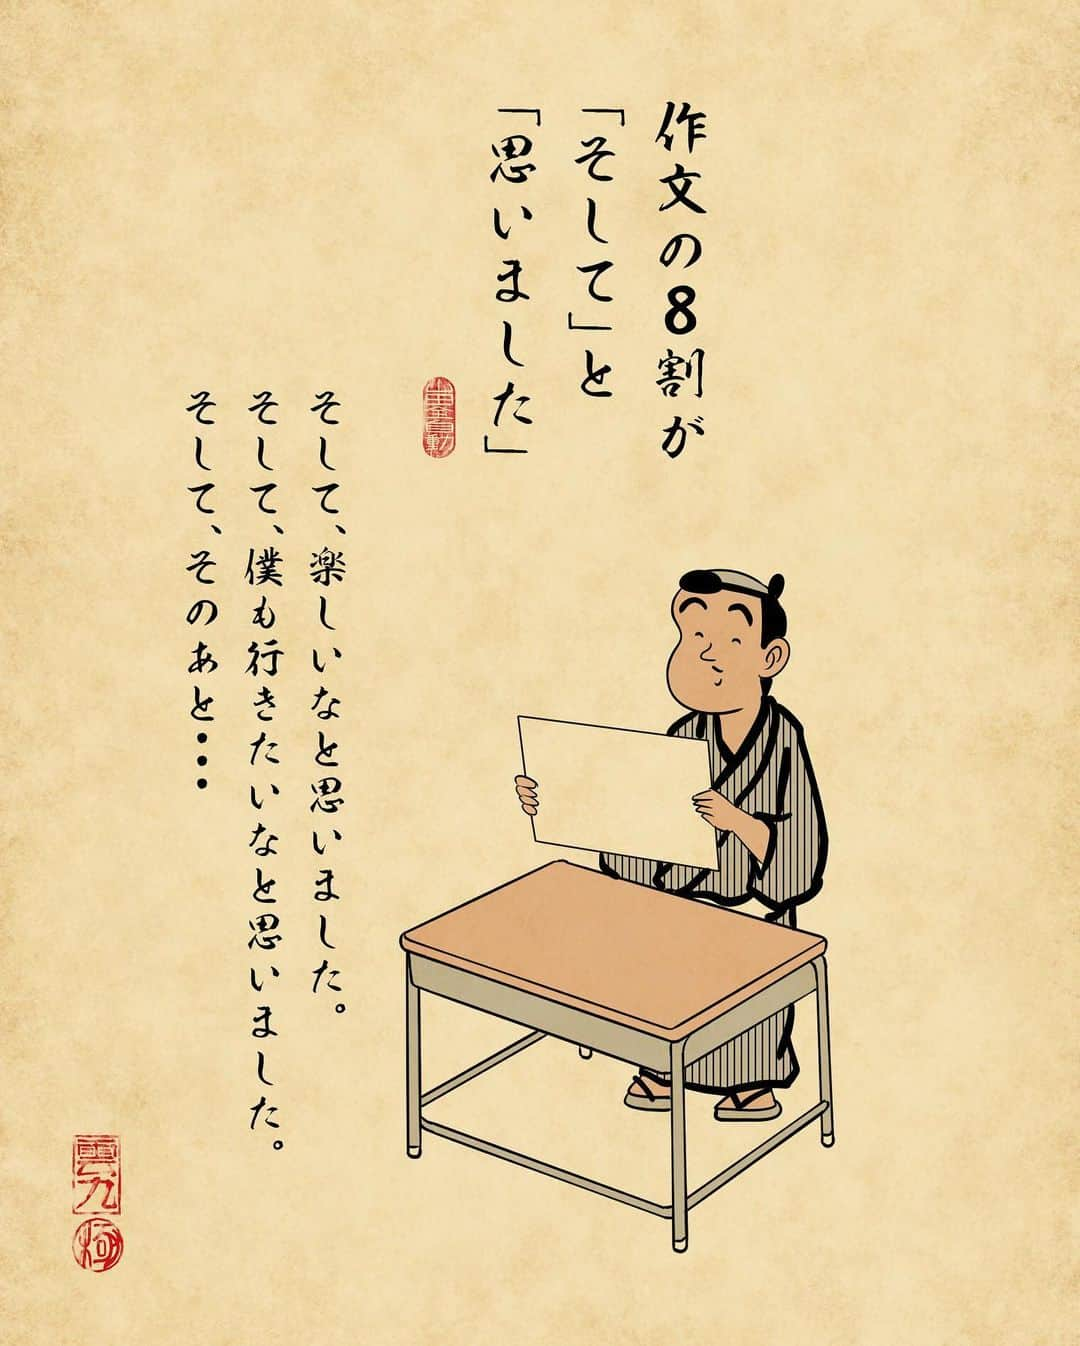 作文の8割が
「そして」と
「思いました」
そして、楽しいなと思いました。
そして、僕も行きたいなと思いました。
そして、そのあと・・・